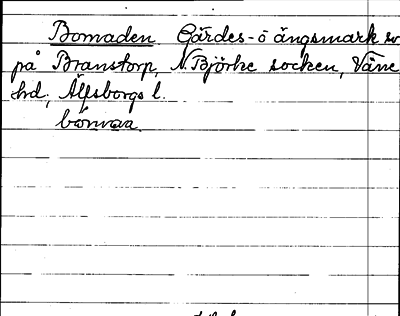 Bomaden Gärdes- o ängsmark sv
på Branstorp, N. Björke socken, Väne
hd, Älfsborgs l.